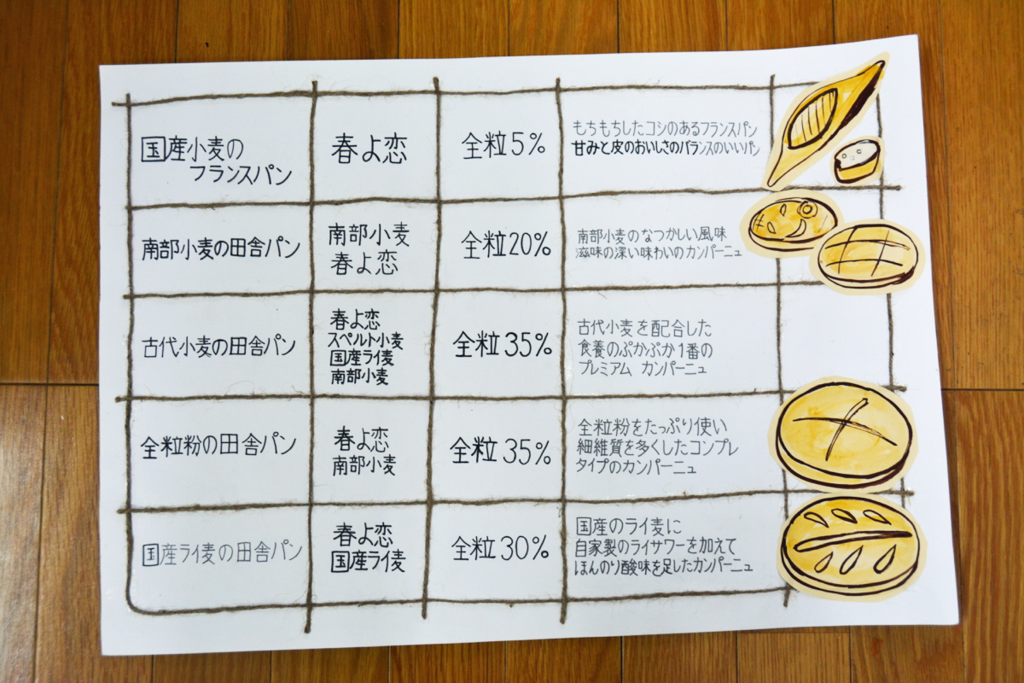 国産小麦の
フランスパン
春よ恋
全粒5%
もちもちしたコシのあるフランスパン
甘みと皮のおいしさのバランスのいいパン
南部小麦の田舎パン
南部小麦
春よ恋
全粒20%
南部小麦のなつかしい風味
滋味の深い味わいのカンパーニュ
古代小麦の田舎パン
春よ恋
スペルト小麦
国産ライ麦
南部小麦
全粒35%
古代小麦を配合した
食養のぷかぷか1番の
プレミアム カンパーニュ
全粒粉の田舎パン
春よ恋
南部小麦
全粒35%
全粒粉をたっぷり使い
細維質を多くしたコンプレ
タイプのカンパーニュ
国産ライ麦の田舎パン
春よ恋
国産ライ麦
全粒30%
国産のライ麦に
自家製のライサワーを加えて
ほんのり酸味を足したカンパーニュ